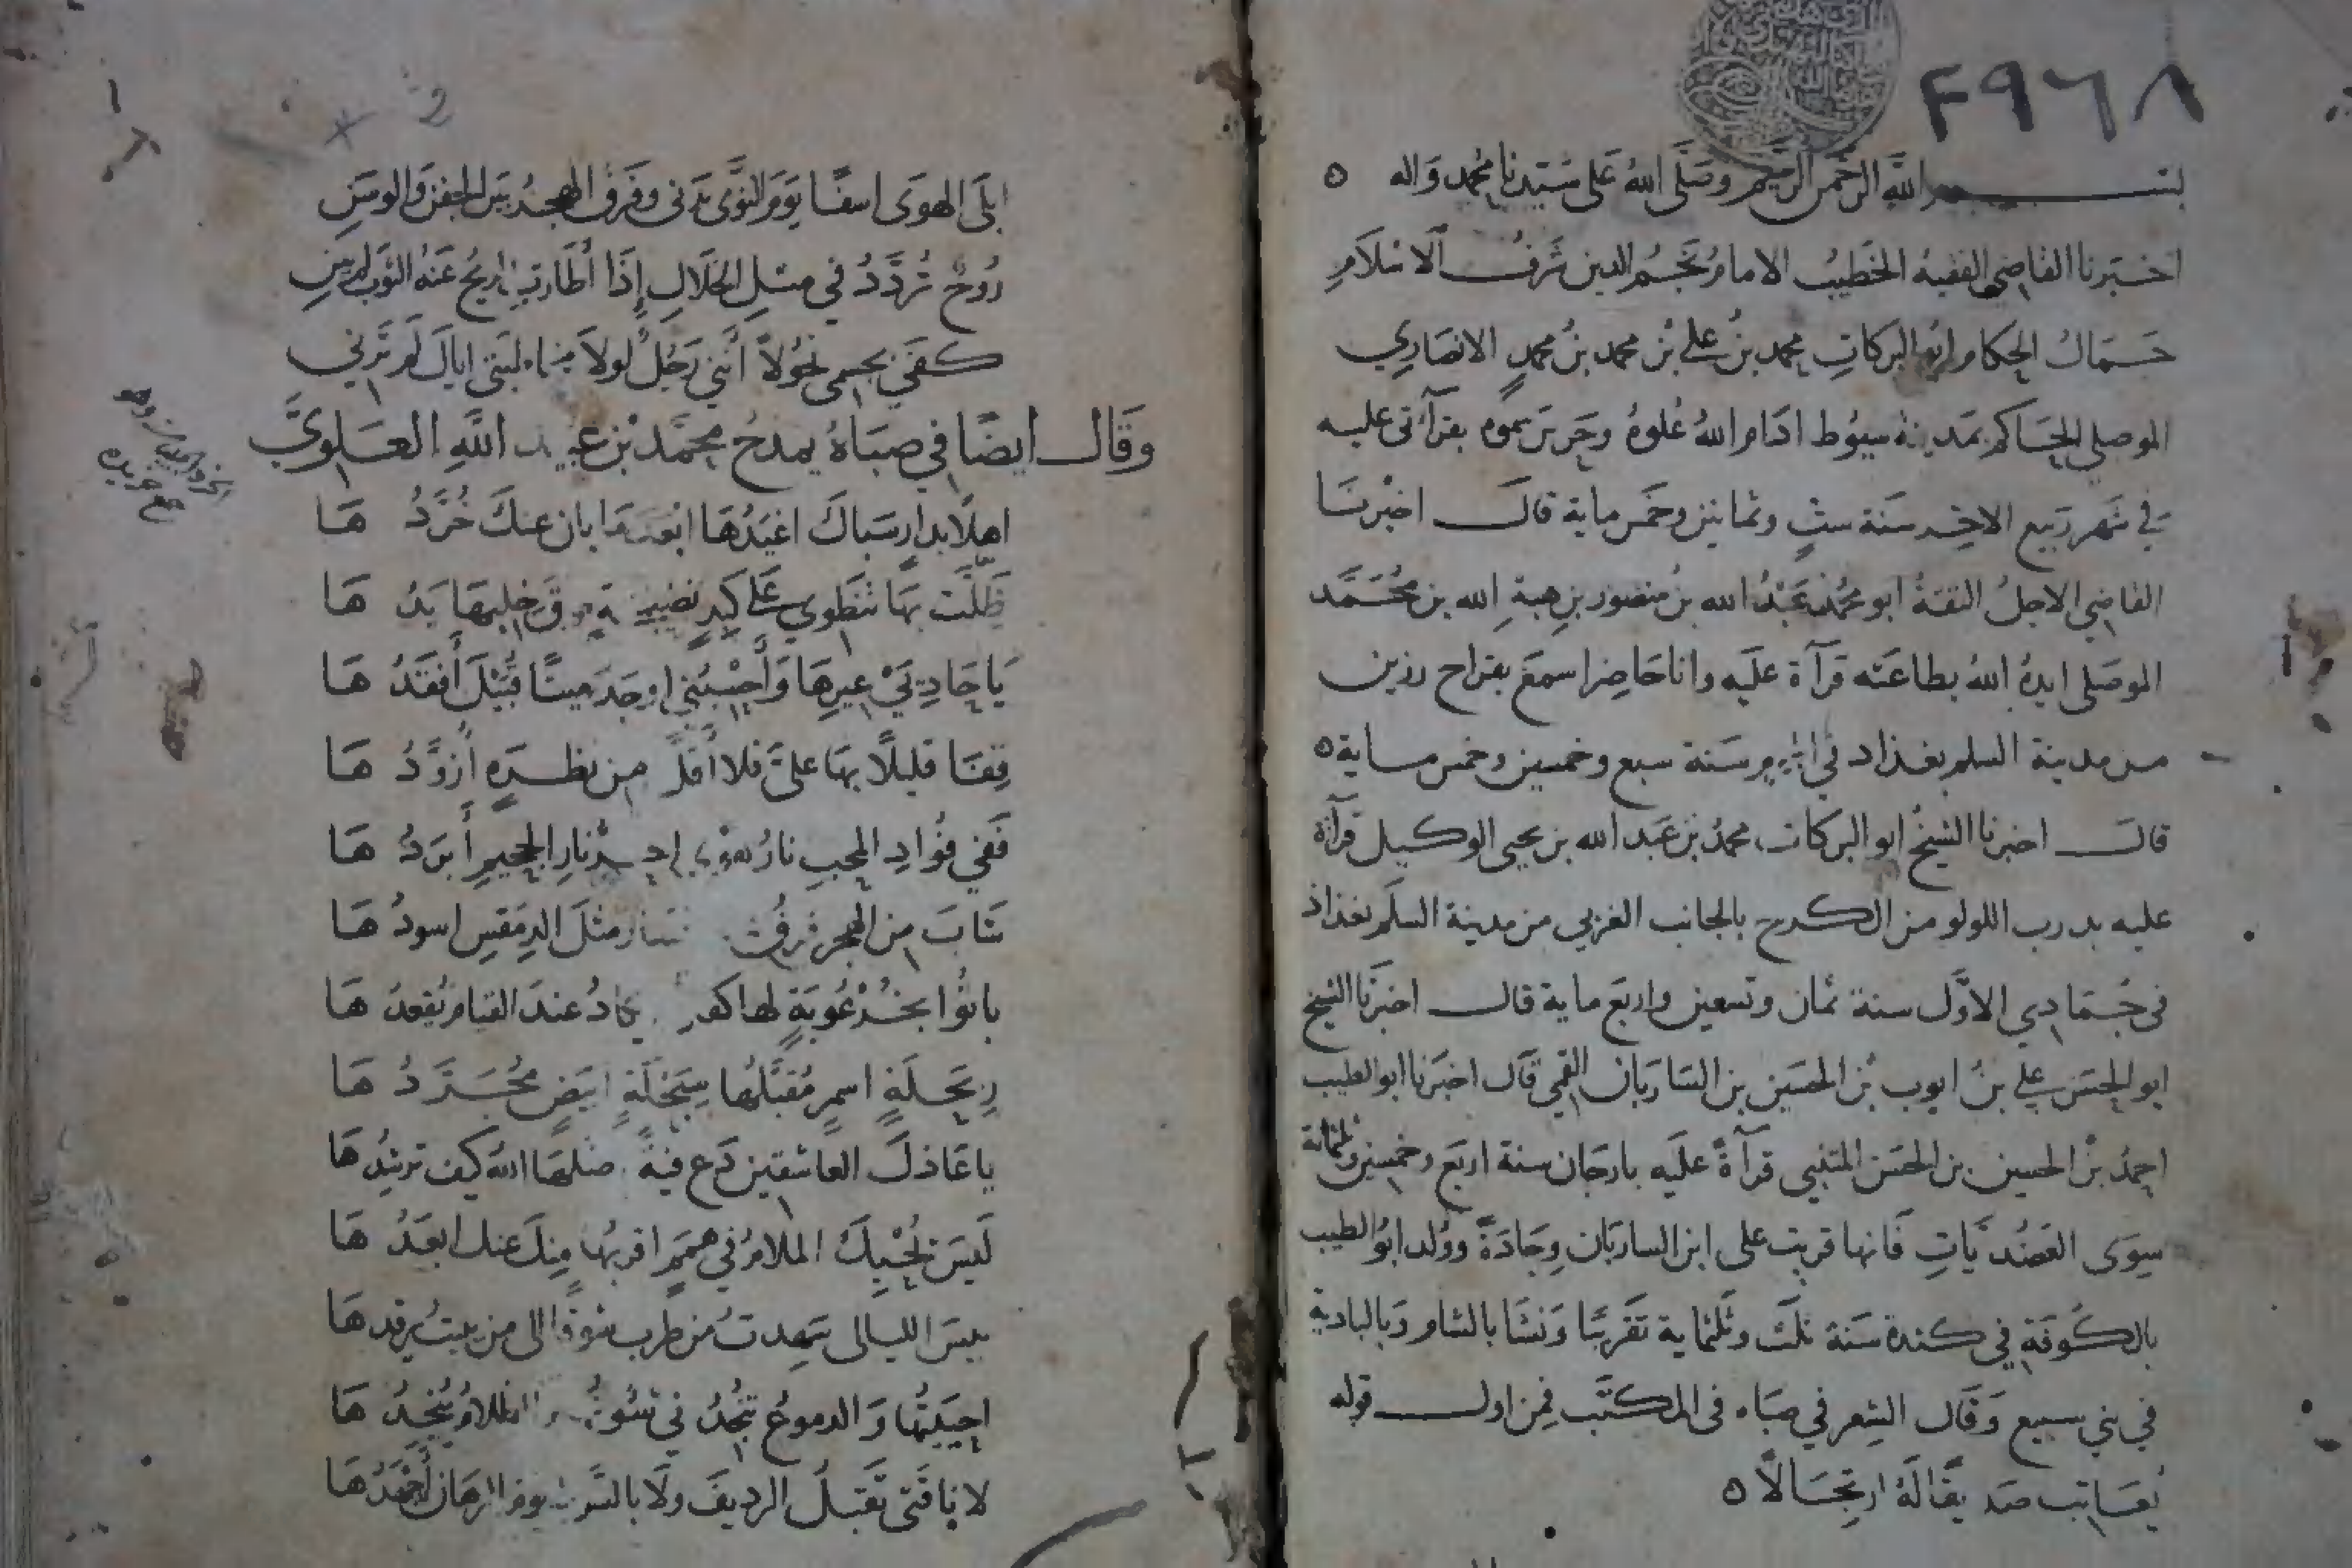 ٣٩٦٨
بسم الله الرحمن الرحيم وصلى الله على سيدنا محمد واله
اخبرنا القاضي الفقيه الخطيب الامام نجم الدين شرف الاسلام
جمال الحكام ابو البركات محمد بن علي بن محمد بن محمد الانصاري
الموصلي الحاكم بمدينة سيوط ادام الله علوه وحرس سموه بقرآتى عليه
في شهر ربيع الاخر سنة ست وثمانين وخمس ماية قال اخبرنا
القاضي الاجل الثقة ابو محمد عبد الله بن منصور بن هبة الله بن محمد
الموصلى ايده الله بطاعته قرآة عليه وانا حاضر اسمع بقراح رزين
من مدينة السلم بغداد في سنة سبع وخمسين وخمس ماية
قال اخبرنا الشيخ ابو البركات محمد بن عبد الله بن يحيى الوكيل قرآة
عليه بدرب اللولو من الكرخ بالجانب الغربي من مدينة السلم بغداد
في جمادي الاول سنة ثمان وتسعين واربع ماية قال اخبرنا الشيخ
ابو الحسن علي بن ايوب بن الحسين بن الساربان القمي قال اخبرنا ابو الطيب
احمد بن الحسين بن الحسن المتنبي قرآة عليه بارجان سنة اربع وخمسين وثلثماية
سوى العضديات فانها قريت على ابن الساربان وجادة وولد ابو الطيب
بالكوفة في كندة سنة ثلث وثلثماية تقريبا ونشا بالشام وبالبادية
في بني سبيع وقال الشعر في صباه فى المكتب فمن اول قوله
يعاتب صديقا له ارتجالا
ابلى الهوى اسفا يوم النوى بدنى وفرق الهجر بين الجفن والوسن
روح تردد في مثل الخلال إذا أطارت الريح عنه الثوب لم يبن
كفى بجسمى نحولا أنني رجل لولا مخاطبتي اياك لم ترني
وقال ايضا في صباه يمدح محمد بن عبيد الله العلوي
اهلا بدار سباك اغيدها ابعد ما بان عنك خردها
ظلت بها تنطوي على كبد نضيجة فوق خلبها يدها
يا حاديي عيرها وأحسبني اوجد ميتا قبيل أفقدها
قفا قليلا بها علي فلا أقل من نظرة أزودها
ففي فؤاد المحب نار احر نار الجحيم أبردها
شاب من الهجر فرق مثل الدمقس اسودها
بانوا بخرعوبة لها كفل يكاد عند القيام يقعدها
ربحلة اسمر مقبلها سبحلة ابيض مجردها
يا عاذل العاشقين دع فئة اضلها الله كيف ترشدها
ليس يحيك الملام في همم اقربها منك عنك ابعدها
بيس الليالى سهدت من طرب شوقا الى من يبيت يرقدها
احييتها والدموع تنجدني شؤونها والظلام ينجدها
لا ناقتي تقبل الرديف ولا بالسوط يوم الرهان أجهدها